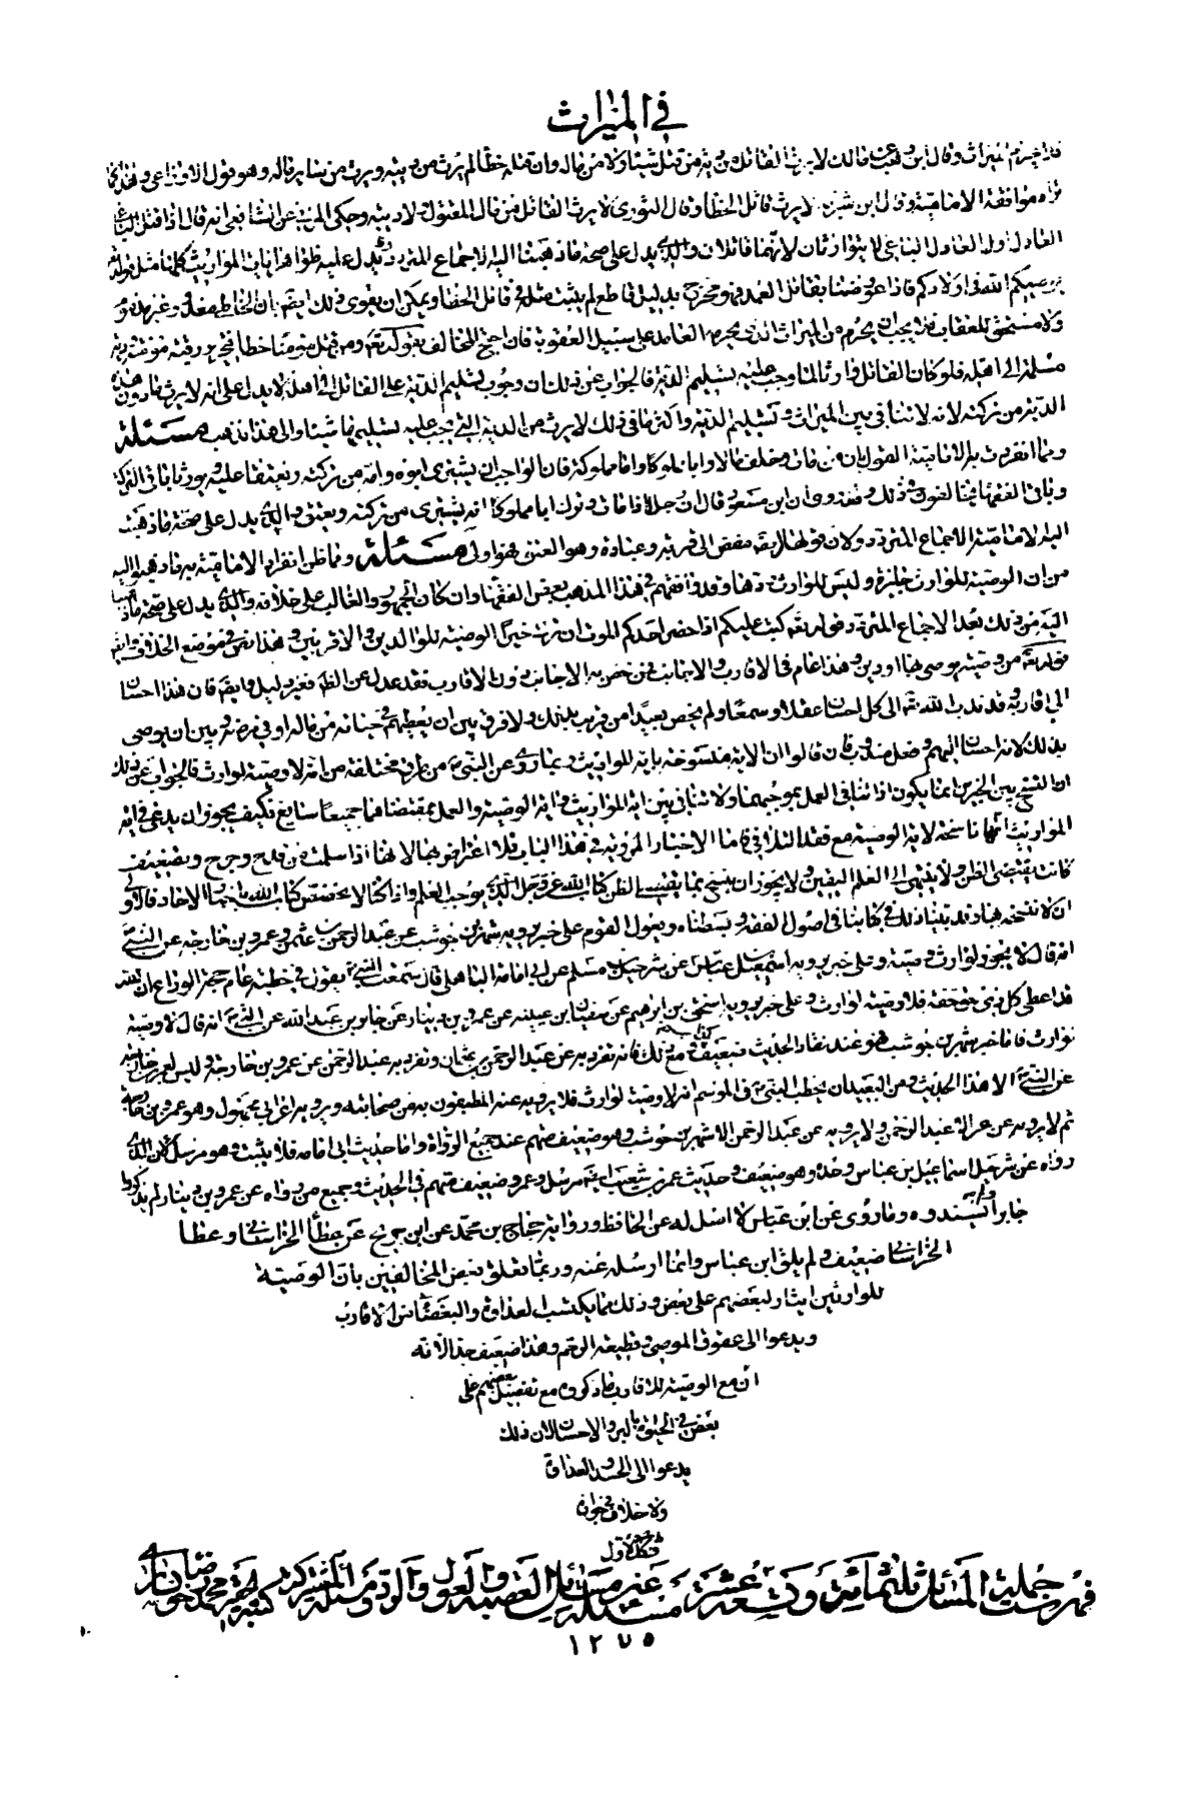 في الميراث
الميراث وقال ابن وهب عن مالك لا يرث القاتل من دية من قتل شيئا ولا من ماله وان قتله خطأ لم يرث من ديته ويرث من سائر ماله وهو قول الاوزاعي وهذا كما
تراه موافقة الامامية وقال ابن شبرمة لا يرث قاتل الخطأ وقال الثوري لا يرث القاتل من مال المقتول ولا ديته وحكى المزني عن الشافعي انه قال اذا قتل الباغي
العادل او العادل الباغي لا يتوارثان لانهما قاتلان والذي يدل على صحة ما ذهبنا اليه الاجماع المتردد ويدل عليه ظواهر ايات المواريث كلها مثل قوله تع
يوصيكم الله في اولادكم فاذا عورضنا بقاتل العمد فهو مخرج بدليل قاطع لم يثبت مثله في قاتل الخطأ ويمكن ان يقوى ذلك ايضا بان الخاطئ معذور غير مذموم
ولا مستحق للعقاب فلا يجب ان يحرم من الميراث الذي يحرمه العامد على سبيل العقوبة فان احتج المخالف بقوله تعالى ومن قتل مؤمنا خطأ فتحرير رقبة مؤمنة ودية
مسلمة الى اهله فلو كان القاتل وارثا لما وجب عليه تسليم الدية فالجواب عن ذلك ان وجوب تسليم الدية على القاتل الى اهله لا يدل على انه لا يرث ما دون هذه
الدية من تركته لانه لا تنافي بين الميراث وتسليم الدية واكثر ما في ذلك لا يرث من الدية التي يجب عليه تسليمها شيئا والى هذا نذهب مسئلة
ومما انفردت به الامامية القول بان من مات وخلف مالا وابا مملوكا واما مملوكة فان الواجب ان يشترى ابوه وامه من تركته ويعتقا عليه ويورثا باقي التركة
وباقي الفقهاء يخالفون في ذلك وقد روى ان ابن مسعود قال ان رجلا اذا مات وترك ابا مملوكا انه يشترى من تركته ويعتق والذي يدل على صحة ما ذهبت
اليه الامامية الاجماع المتردد ولان قولها ايضا مفض الى قربة وعبادة وهو العتق فهو اولى مسئلة ومما ظن انفراد الامامية به ما ذهبوا اليه
من ان الوصية للوارث جائزة وليس للوارث ردها وقد وافقهم في هذا المذهب بعض الفقهاء وان كان الجمهور والغالب على خلافه والذي يدل على صحة ما ذهبنا
اليه من ذلك بعد الاجماع المتردد قوله تعالى كتب عليكم اذا حضر احدكم الموت ان ترك خيرا الوصية للوالدين والاقربين وهذا نص في موضع الخلاف وايضا
قوله تعالى من وصية يوصي بها او دين وهذا عام في الاقارب والاجانب فمن خص به الاجانب دون الاقارب فقد عدل عن الظاهر بغير دليل وايضا فان هذا احسان
الى اقاربه وقد ندب الله تعالى الى كل احسان عقلا وسمعا ولم يخص بعيدا من قريب بذلك ولا فرق بين ان يعطيهم في حياته من ماله او في مرضه وبين ان يوصي
بذلك لانه احسان اليهم وفعل مندوب فان قالوا ان الاية منسوخة باية المواريث وبما روي عن النبي من طرق مختلفة من انه لا وصية لوارث فالجواب عن ذلك
ان النسخ بين الخبرين انما يكون اذا تنافى العمل بموجبهما ولا تنافي بين اية المواريث واية الوصية والعمل بمقتضاهما جميعا سايغ فكيف يجوز ان يدعى في اية
المواريث انها ناسخة لاية الوصية مع فقد التنافي فاما الاخبار المروية في هذا الباب فلا اعتراض بها لانها اذا سلمت من قدح وجرح وتضعيف
كانت تقتضي الظن ولا ينتهي الى العلم اليقين ولا يجوز ان ينسخ بما يقتضي الظن كتاب الله عز وجل الذي يوجب العلم واذا كنا لا نخصص كتاب الله باخبار الاحاد فالاولى
ان لا ننسخه بها وقد بينا ذلك في كتابنا في اصول الفقه وبسطناه ويعول القوم على خبر يرويه شهر بن حوشب عن عبد الرحمن بن عثمن وعمرو بن خارجة عن النبي
انه قال لا يجوز لوارث وصية وعلى خبر يرويه اسمعيل بن عياش عن شرحبيل بن مسلم عن ابي امامة الباهلي قال سمعت النبي يقول في خطبته عام حجة الوداع ان الله
قد اعطى كل ذي حق حقه فلا وصية لوارث وعلى خبر يرويه اسحق بن ابراهيم عن سفيان بن عيينه عن عمرو بن دينار عن جابر بن عبد الله عن النبي انه قال لا وصية
لوارث فاما خبر شهر بن حوشب فهو عند نقاد الحديث ضعيف ومع ذلك فانه تفرد به عن عبد الرحمن بن عثمان وتفرد به عبد الرحمن عن عمرو بن خارجة وليس لعمرو بن خارجة
عن النبي الا هذا الحديث ومن البعيد ان يخطب النبي في الموسم انه لا وصية لوارث فلا يرويه عنه المطيفون به من صحابته ويرويه اعرابي مجهول وهو عمرو بن خارجة
ثم لا يرويه عن عمرو الا عبد الرحمن ولا يرويه عن عبد الرحمن الا شهر بن حوشب وهو ضعيف متهم عند جميع الرواة واما حديث ابي امامه فلا يثبت وهو مرسل لان الذي
رواه عن شرحبيل اسماعيل بن عياش وحده وهو ضعيف وحديث عمرو بن شعيب ايضا مرسل وعمرو ضعيف متهم في الحديث وجميع من رواه عن عمرو بن دينار لم يذكروا
جابرا ولم يسندوه وما روي عن ابن عباس لا اصل له عن الحافظ ورواية حجاج بن محمد عن ابن جريح عن عطأ الخراساني وعطا
الخراساني ضعيف ولم يلق ابن عباس وانما ارسله عنه وربما تعلق بعض المخالفين بان الوصية
للوارثين ايثار لبعضهم على بعض وذلك مما يكسب العداوة والبغضاء بين الاقارب
ويدعوا الى عقوق الموصي وقطيعة الرحم وهذا ضعيف جدا لانه
ان منع الوصية للاقارب ما ذكروه منع تفضيل بعضهم على
بعض في الحيوة بالبر والاحسان لان ذلك
يدعوا الى الحسد والعداوة
ولا خلاف في جوازه
فكذلك الاول
فهرست جملة المسائل ثلثمائة وتسعة عشر مسئلة غير مسائل العصبة والعول والرد ومسئلة المشتركة كتبه احقر محمد رضا خوانساري
١٢٧٥